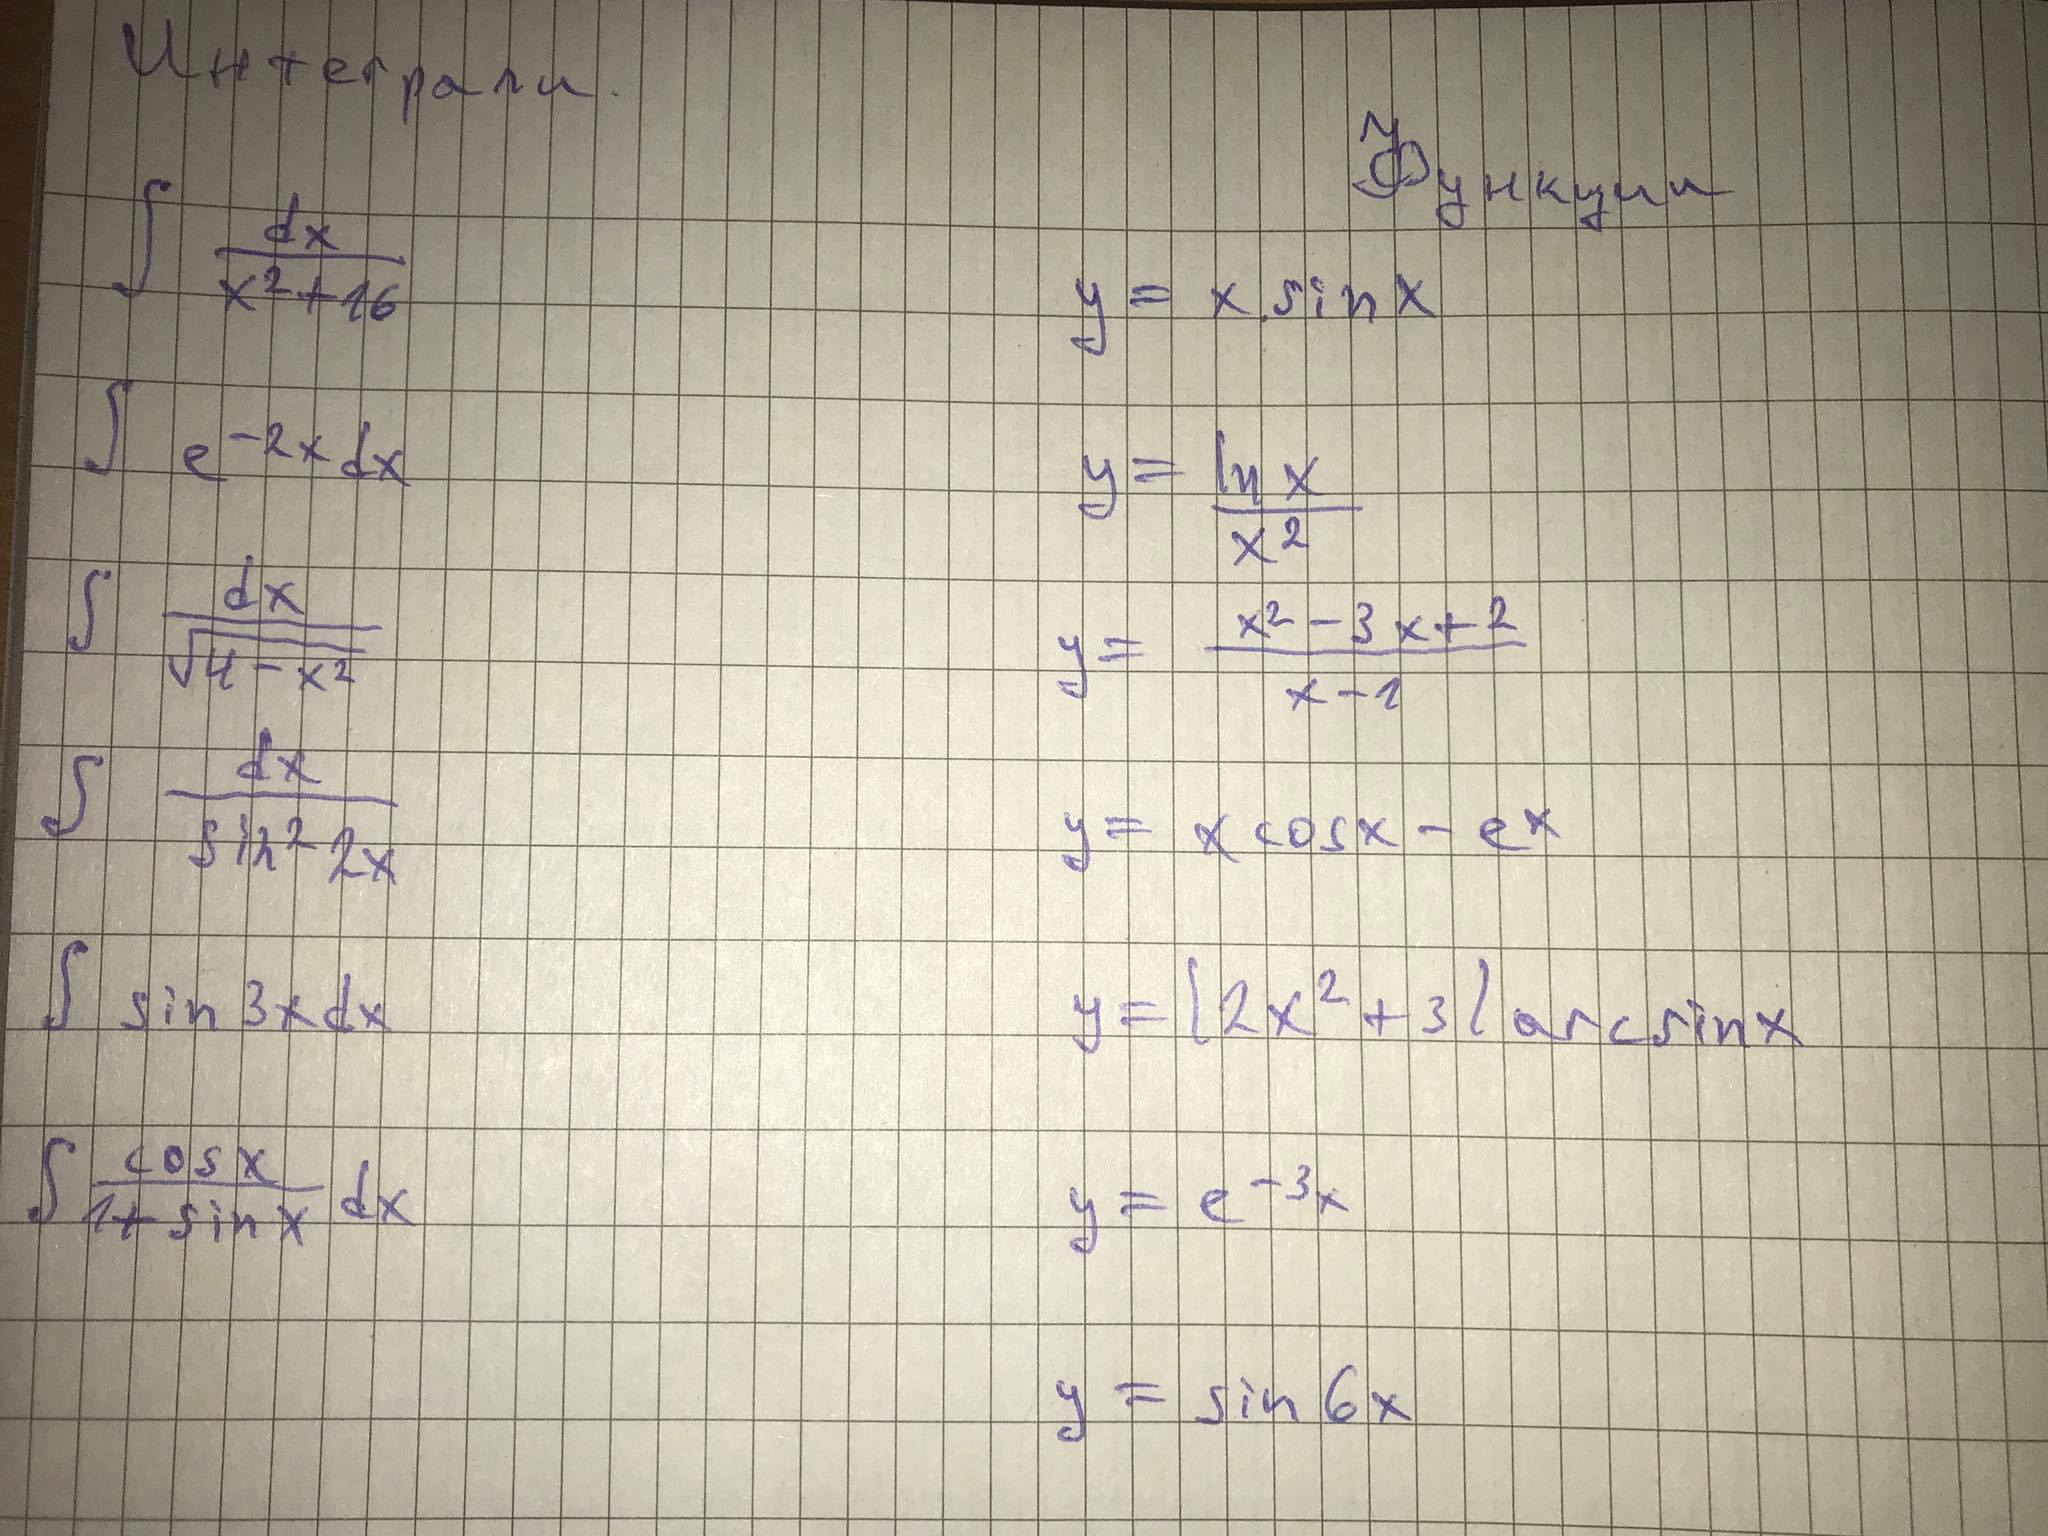 Интеграли.
∫ dx / (x² + 16)
∫ e^(-2x) dx
∫ dx / √(4 - x²)
∫ dx / sin² 2x
∫ sin 3x dx
∫ cos x / (1 + sin x) dx
Функции
y = x.sin x
y = ln x / x²
y = (x² - 3x + 2) / (x - 1)
y = x cos x - e^x
y = (2x² + 3) arcsin x
y = e^(-3x)
y = sin 6x